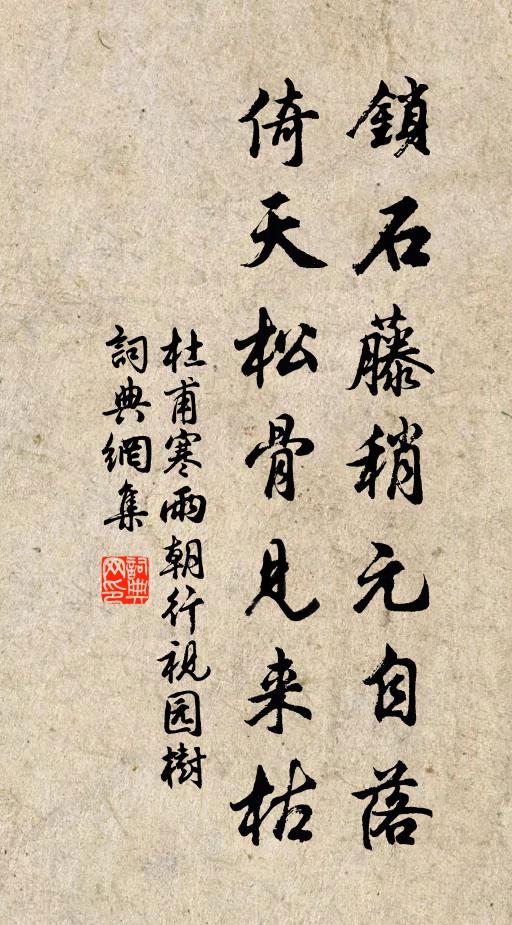 鎖石藤稍元自落
倚天松骨見来枯
杜甫寒雨朝行視园樹
詞典網集
詞典网印